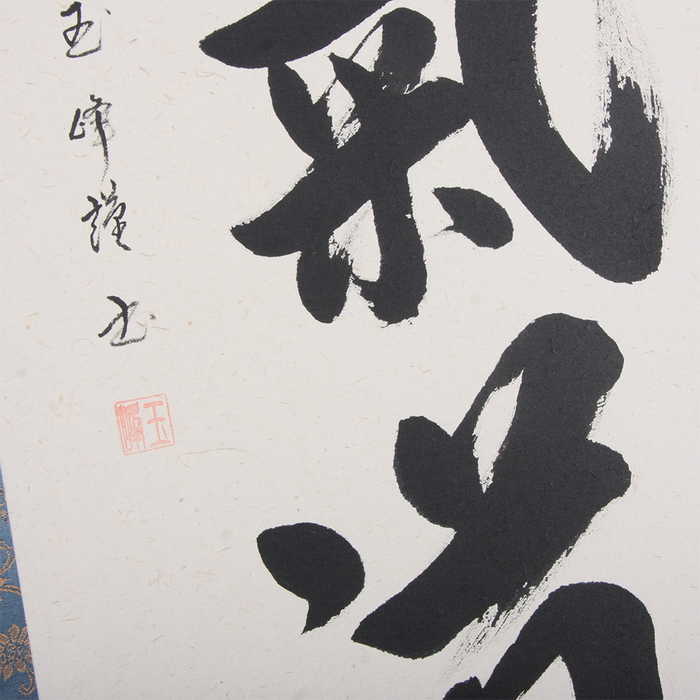 氣
玉峰謹書
玉峰